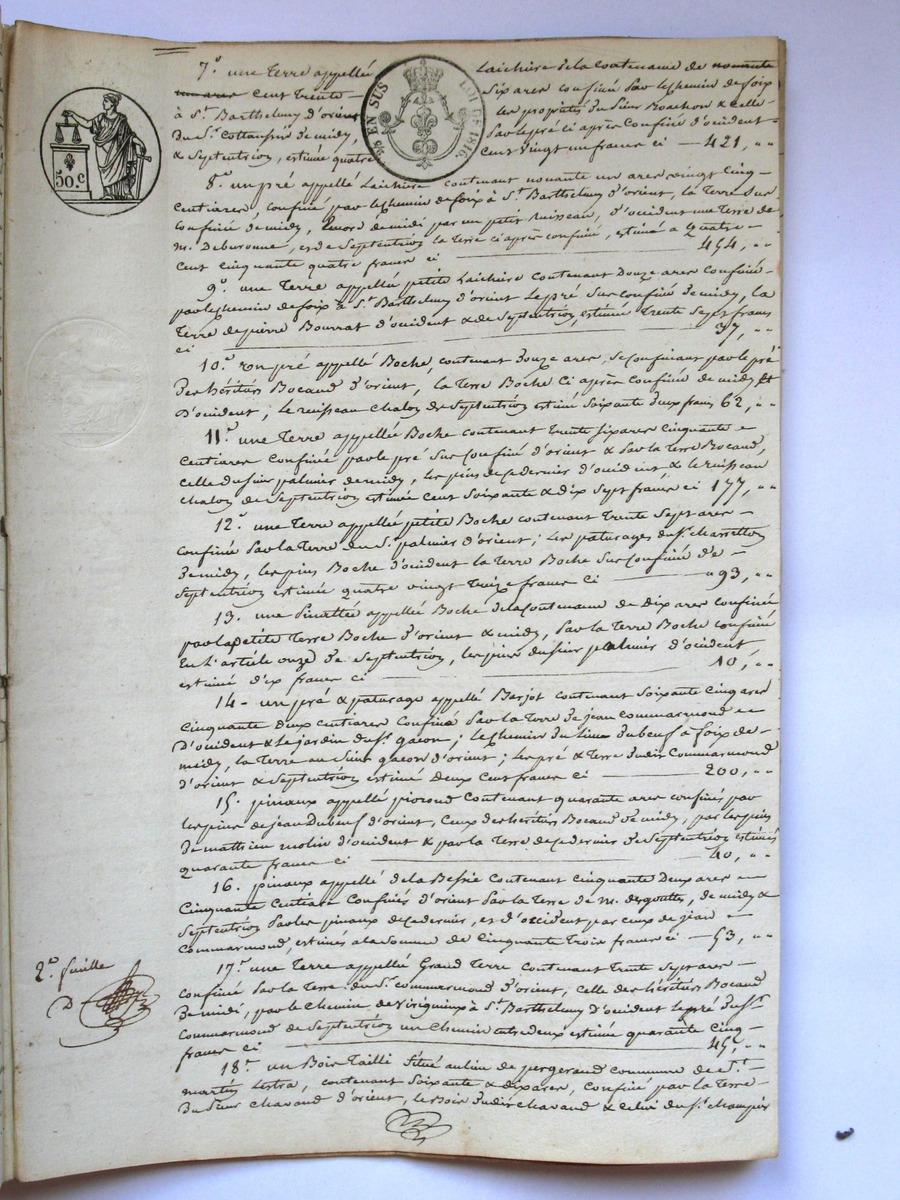 7.o une Terre appellée Laichère de la Contenance de nonante
un ares Cent Trente Six ares confiné par le chemin de foix
à St. Barthelmy d'orient les propriétés du Sieur Roachon & celle
du St. Cottancin de midy, par le pré ci après Confiné d'occident
& Septentrion, estimée quatre Cent vingt un francs ci — 421, " "
EN SUS
LOI DE 1816.
50.c
8.o un pré appellé Laichère contenant nonante un ares vingt Cinq
Centiares, confiné par le chemin de foix à St. Barthelmy d'orient, la Terre Sus
Confiné de midy, encore de midi par un petit ruisseau, d'occident une Terre de
M. Deburonne, et de Septentrion la Terre ci après confiné, estimé a Quatre
Cent Cinquante quatre francs ci — 454, " "
9.o une Terre appellé petite Laichère Contenant Douze ares Confiné
par le chemin de foix à St. Barthelmy d'orient Le pré Sus confiné de midy, la
Terre de pierre Bourrat d'occident & de Septentrion, estimée Trente Sept francs
ci — 37, " "
10.o un pré appellé Boche, contenant Douze ares, se confinant par le pré
des héritiers Bocaud d'orient, la Terre Boche Ci après confiné de midy et
D'occident, le ruisseau Chalon de Septentrion estimé Soixante deux francs 62, " "
11.o une Terre appellée Boche contenant Trente six ares Cinquante
Centiares Confinée par le pré Sus confiné d'orient & par la Terre Bocaud,
celle du sieur palmier de midy, les pins de ce dernier d'occident & le ruisseau
Chalon de Septentrion estimée Cent Soixante & dix Sept francs ci 177, " "
12.o une Terre appellée petite Boche contenant Trente Sept ares
confinée par la Terre du St. palmier d'orient; les paturages du St. Charretton
de midy, les pins Boche d'occident la Terre Boche Sus confiné de
Septentrion estimée quatre vingt Treize francs Ci — 93, " "
13. une appellée Boche de la Contenance de Dix ares confinée
par la petite Terre Boche d'orient & midy, par la Terre Boche confiné
En l'article onze de Septentrion, les pins du sieur palmier d'occident,
estimée dix francs ci — 10, " "
14 - un pré & paturage appellé Barjot contenant Soixante Cinq ares
Cinquante Deux centiares Confiné par la Terre de jean Commarmond
D'occident & le jardin du St. gacon; le chemin du Sieur Dubeuf a foix de
midy, la Terre au Sieur gacon d'orient; les pré & Terre dudit Commarmond
d'orient & Septentrion estimé Deux Cent francs ci — 200, " "
15. pinaux appellé piorond Contenant quarante ares confinés par
les pins de jean Dubeuf d'orient, Ceux des héritiers Bocaud de midy, par les pins
de mathieu molin d'occident & par la Terre de ce dernier de Septentrion estimés
quarante francs ci — 40, " "
16. pinaux appellé de la Bessée Contenant Cinquante Deux ares
Cinquante Centiare Confinés d'orient par la Terre de M. desgouttes, de midy &
Septentrion par les pinaux de ce dernier, et d'occident par ceux de jean
Commarmond, estimés a la somme de Cinquante Trois francs ci — 53, " "
2.e feuille
17.o une Terre appellé Grand Terre contenant Trente Sept ares
confinée par la Terre du St. Commarmond d'orient, celle des héritiers Bocaud
de midi, par le Chemin de Virigneux à St. Barthelmy d'occident le pré du St.
Commarmond de Septentrion un Chemin entre deux estimée quarante Cinq
francs ci — 45, " "
18.o un Bois Taillé Situé au lieu de pergerand commune de St.
martin Lestra, contenant Soixante & dix ares, confiné par la Terre
du Sieur Chavand d'orient, le Bois dudit Chavand & celui du St.